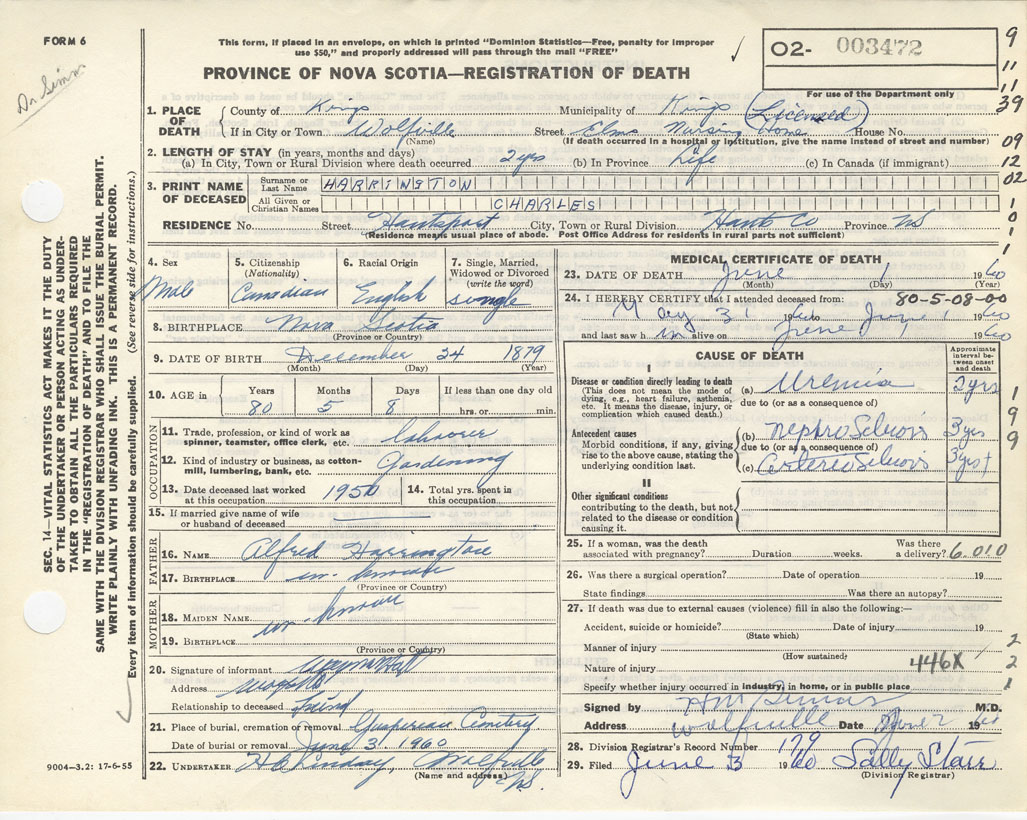 FORM 6
Dr Simms
This form, if placed in an envelope, on which is printed "Dominion Statistics—Free, penalty for improper
use $50," and properly addressed will pass through the mail "FREE"
PROVINCE OF NOVA SCOTIA—REGISTRATION OF DEATH
O2- 003472
For use of the Department only
9
11
11
39
09
12
02
1
0
1
1
1. PLACE OF DEATH
County of Kings Municipality of Kings (Licensed)
If in City or Town Wolfville Street Elms Nursing Home House No.
(Name) (If death occurred in a hospital or institution, give the name instead of street and number)
2. LENGTH OF STAY (in years, months and days)
(a) In City, Town or Rural Division where death occurred 2 yrs (b) In Province Life (c) In Canada (if immigrant)
3. PRINT NAME OF DECEASED
Surname or Last Name HARRINGTON
All Given or Christian Names CHARLES
RESIDENCE No. Street Hantsport City, Town or Rural Division Hants Co Province NS
(Residence means usual place of abode. Post Office Address for residents in rural parts not sufficient)
SEC. 14—VITAL STATISTICS ACT MAKES IT THE DUTY
OF THE UNDERTAKER OR PERSON ACTING AS UNDER-
TAKER TO OBTAIN ALL THE PARTICULARS REQUIRED
IN THE "REGISTRATION OF DEATH" AND TO FILE THE
SAME WITH THE DIVISION REGISTRAR WHO SHALL ISSUE THE BURIAL PERMIT.
WRITE PLAINLY WITH UNFADING INK. THIS IS A PERMANENT RECORD.
Every item of information should be carefully supplied. (See reverse side for instructions.)
4. Sex Male
5. Citizenship (Nationality) Canadian
6. Racial Origin English
7. Single, Married, Widowed or Divorced (write the word) single
8. BIRTHPLACE Nova Scotia
(Province or Country)
9. DATE OF BIRTH December 24 1879
(Month) (Day) (Year)
10. AGE in Years 80 Months 5 Days 8 If less than one day old hrs. or min.
OCCUPATION
11. Trade, profession, or kind of work as spinner, teamster, office clerk, etc. Labourer
12. Kind of industry or business, as cotton-mill, lumbering, bank, etc. Gardening
13. Date deceased last worked at this occupation 1950
14. Total yrs. spent in this occupation
15. If married give name of wife or husband of deceased
FATHER
16. NAME Alfred Harrington
17. BIRTHPLACE un-known
(Province or Country)
MOTHER
18. MAIDEN NAME un-known
19. BIRTHPLACE
(Province or Country)
20. Signature of informant
Address
Relationship to deceased Friend
21. Place of burial, cremation or removal Gaspereau Cemetery
Date of burial or removal June 3, 1960
22. UNDERTAKER Wolfville NS.
(Name and address)
9004-3.2: 17-6-55
MEDICAL CERTIFICATE OF DEATH
23. DATE OF DEATH June 1 1960
(Month) (Day) (Year)
24. I HEREBY CERTIFY that I attended deceased from: 80-5-08-00
May 31 1960 to June 1 1960
and last saw h im alive on June 1 1960
CAUSE OF DEATH
Approximate interval between onset and death
I
Disease or condition directly leading to death
(This does not mean the mode of dying, e.g., heart failure, asthenia, etc. It means the disease, injury, or complication which caused death.)
(a) Uremia 2 yrs
due to (or as a consequence of)
Antecedent causes
Morbid conditions, if any, giving rise to the above cause, stating the underlying condition last.
(b) nephro Sclerosis 3 yrs
due to (or as a consequence of)
(c) arterio Sclerosis 3 yrs+
II
Other significant conditions contributing to the death, but not related to the disease or condition causing it.
1
9
9
25. If a woman, was the death associated with pregnancy? Duration weeks. Was there a delivery? 6.010
26. Was there a surgical operation? Date of operation 19
State findings Was there an autopsy?
27. If death was due to external causes (violence) fill in also the following:—
Accident, suicide or homicide? Date of injury 19
(State which)
Manner of injury
(How sustained)
Nature of injury 446X
Specify whether injury occurred in industry, in home, or in public place
2
2
1
Signed by M.D.
Address Wolfville Date June 2 1960
28. Division Registrar's Record Number 179
29. Filed June 3 1960 Sally Starr
(Division Registrar)